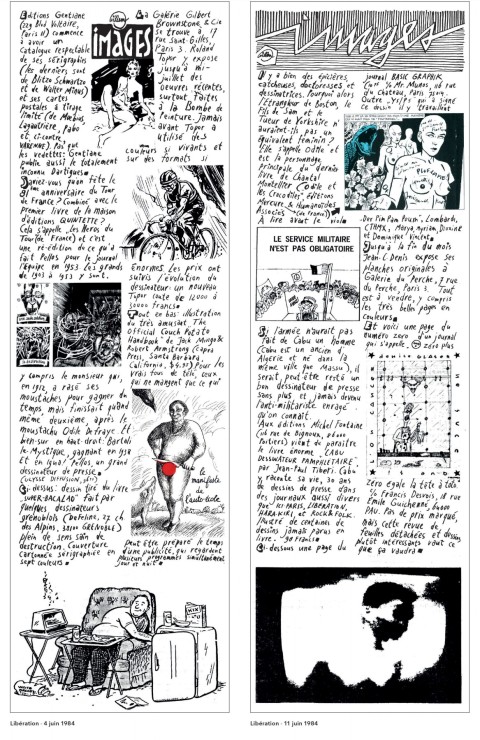 Editions Gentiane
(229 Bld Voltaire,
Paris 11) commence
à avoir un
catalogue respectable
de ses sérigraphies
(les derniers sont
de Blitzo Schmartzo
et de Walter Minus)
et ses cartes
postales à tirage
limité (de Moebius,
Lagautrière, Pabo
et, ci-contre,
VARENNE). Pas que
les vedettes: Gentiane
publie aussi le totalement
inconnu Dartigues
Saviez-vous qu'on fête le
anniversaire du Tour
de France? Combiné avec le
premier livre de la maison
d'éditions QUINTETTE?
Cela s'appelle, les Heros du
Tour de France) et c'est
une ré-édition de ce qu'a
fait Pellos pour le journal
l'Equipe en 1953. Les grands
de 1903 à 1953 y sont.
IMAGES
La Galérie Gilbert
Brownstone & Cie
se trouve à 17
rue Saint-Gilles,
Paris 3. Roland
Topor y expose
jusqu'à mi-
juillet des
oeuvres récentes,
surtout faites
à la Bombe de
Peinture. Jamais
avant Topor a
utilisé des
couleurs si vivants et
sur des formats si
énormes. Les prix ont
suivis l'évolution du
dessinateur: un nouveau
Topor coute de 12000 à
30000 francs
Tout en bas: illustration
du très amusant "The
Official Couch Potato
Handbook" de Jack Mingo &
Robert Armstrong (Capra
Press, Santa Barbara,
California, $4.95) Pour les
vrais fous de télé, ceux
qui ne mangent que ce qui
y compris le monsieur qui,
en 1912 a rasé ses
moustaches pour gagner du
temps mais finissait quand
même deuxième, après le
moustachu Odile Defraye. Et
ben-sur en haut-droit: Bartali
le Mystique, gagnant en 1938
et en 1948! Pellos, un grand
dessinateur de Presse.
(ULYSSE DIFFUSION,
Ci-dessus: dessin tiré du livre
"SUPER-BACALAO" fait par
quelques dessinateurs
grenoblois (Dofeine, 27 ch
des Alpins, 38100 GRENOBLE)
plein de sens sain de
destruction. Couverture
cartonnée sérigraphiée en
sept couleurs
le
manifiak
de
l'auto-école
peut être préparé le temps
d'une publicité, qui regardent
plusieurs programmes simultanément
jour et nuit
Libération - 4 juin 1984
images
Il y a bien des épicières,
catcheuses, doctoresses et
dessinatrices, Pourquoi alors
l'Etrangleur de Boston, le
Fils de Sam et le
Tueur de Yorkshire n'
auraient-ils pas un
équivalent féminin?
Elle s'appelle Odile et
est la personnage
principale du dernier
livre de Chantal
Montellier (Odile et
les Crocodiles, éditions
Mercure & Humanoides
Associés
A lire avant le viol
journal BASIC GRAPHIK
(10f % Mr. Mudns, 68 rue
du Chateau, Paris 75014.
Outre "Ysfs" qui a signé
ce dessin il y travaillent
PLUFORME
Doc Pin Pan Prum', Lombarh,
CTHMX, Mörg, Myriam, Dorine
et Dominique Vincent.
Jusqu'à la fin du mois
Jean-C Denis expose ses
planches originales à
Gallerie du Perche, 7 rue
du Perche, Paris 3. Tout
est à vendre, y compris
les très belles pages en
couleurs
Et voici une page du
numéro zéro d'un journal
qui s'appelle zéro plus
LE SERVICE MILITAIRE
N'EST PAS OBLIGATOIRE
Si l'armée n'aurait pas
fait de Cabu un homme
(Cabu est un ancien d'
Algérie et né dans la
même ville que Massu), il
serait peut être resté un
bon dessinateur de presse
sans plus et jamais devenu
l'anti-militariste enragé
qu'on connait.
Aux éditions Michel Fontaine
(46 rue de Bignoux, 86000
Poitiers) vient de paraître
le livre énorme "CABU
DESSINATEUR PAMPHLETAIRE"
par Jean-Paul Tibéri. Cabu
y raconte sa vie, 30 ans
de dessins de presse dans
des journaux aussi divers
que ICI PARIS, LIBERATION,
HARA-KIRI, et ROCK & FOLK.
Illustré de centaines de
dessins jamais parus en
livre. 90 francs
Ci-dessous une page du
zéro égale la tête à toto.
% Francis Desvois, 18 rue
Emile Guichenné, 64000
PAU. Pas de prix marqué,
mais cette revue de
feuilles détachées et dessins
plutôt interessants vaut ce
que ça vaudra
Libération - 11 juin 1984